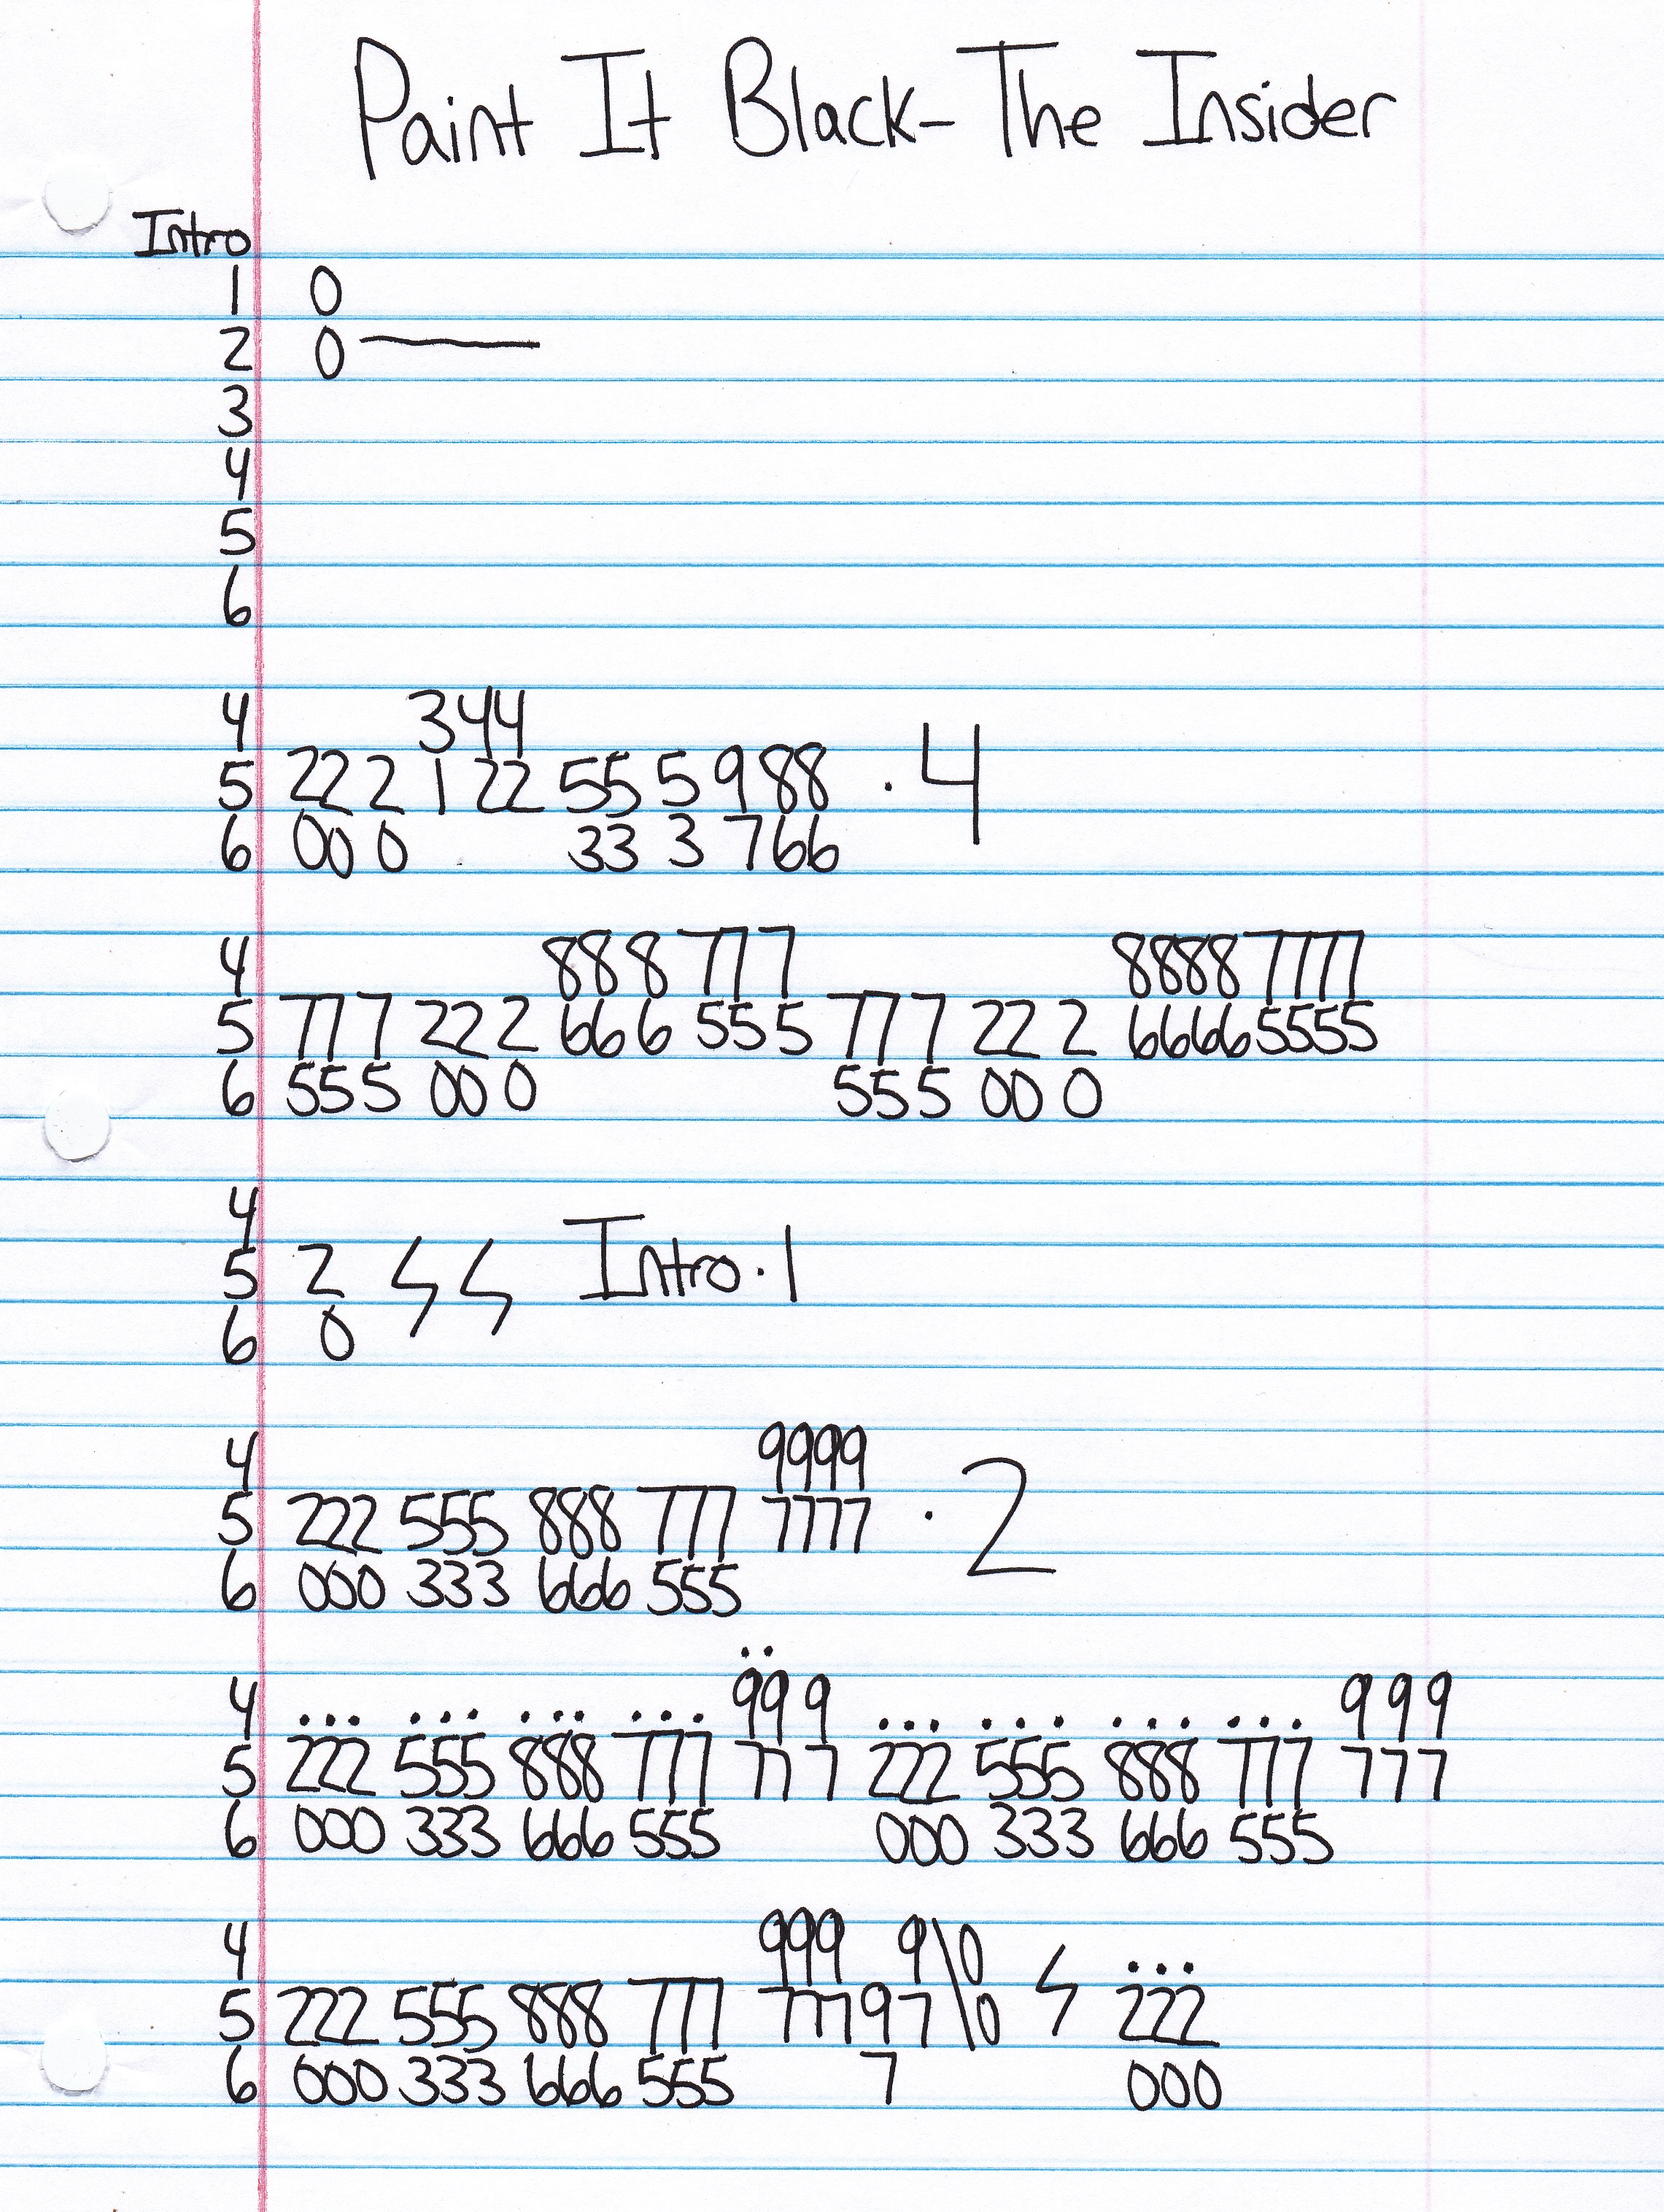 Paint It Black- The Insider
Intro
1 0
2 0 —
3
4
5
6
4 344
5 22 2 1 22 55 5 9 88 . 4
6 00 0 33 3 7 66
4 88 8 77 7 8888 7777
5 77 7 22 2 66 6 55 5 77 7 22 2 6666 5555
6 55 5 00 0 55 5 00 0
4
5 2 ϟ ϟ Intro . 1
6 0
4 9999
5 222 555 888 777 7777 . 2
6 000 333 666 555
..
4 ... ... ... ... 99 9 ... ... ... ... 9 9 9
5 222 555 888 777 77 7 222 555 888 777 7 7 7
6 000 333 666 555 000 333 666 555
4 999 9\0 ...
5 222 555 888 777 777 9 7\0 ϟ 222
6 000 333 666 555 7 000